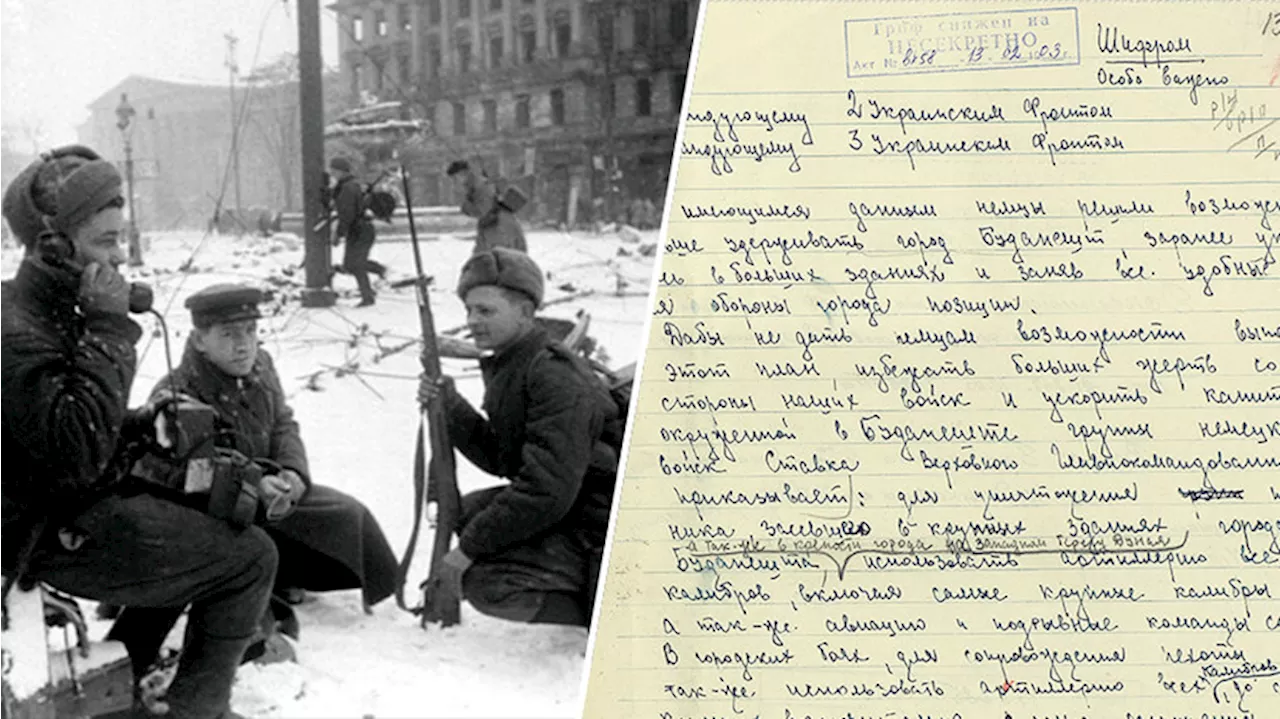 Гриф снижен на
НЕСЕКРЕТНО
Акт № 8158 13.02.03г.
13
Шифром
Особо важно
ндующему 2 Украинским Фронтом
мандующему 3 Украинским Фронтом
имеющимся данным немцы решили возможн
ьше удерживать город Будапешт, заранее у
сь в больших зданиях и заняв все удобные
я обороны города позиции.
Дабы не дать немцам возможности вып
этот план, избежать больших жертв со
стороны наших войск и ускорить капит
окруженной в Будапеште группы немецк
войск Ставка Верховного Главнокомандовани
приказывает: для уничтожения
ника засевшего в крупных зданиях город
а так-же в крепости города на западном берегу Дуная
Будапешта использовать артиллерию все
калибров, включая самые крупные калибры
а так-же авиацию и подрывные команды с
В городских боях, для сопровождения пехоты
калибров
так-же использовать артиллерию всех , до